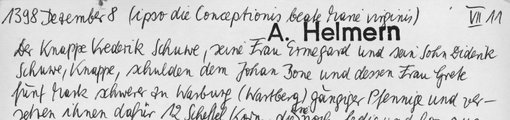 1398 Dezember 8 (ipso die Conceptionis beate Marie virginis) VII 11
A. Helmern
Der Knappe Frederik Schuwe, seine Frau Ermegard und sein Sohn Diderik
Schuwe, Knappe, schulden dem Johan Bone und dessen Frau Grete
fünf Mark schwerer zu Warburg (Wartberg) gängiger Pfennige und ver-
setzen ihnen dafür 12 Scheffel Korn, die noch ledig und